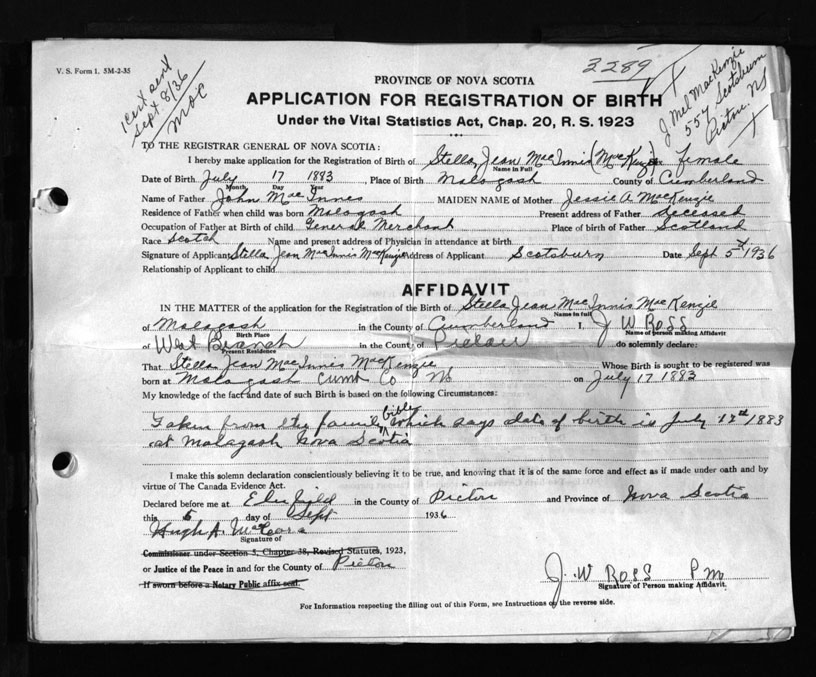 V. S. Form 1. 5M-2-35
1 cert sent
Sept. 8/36
MOC
3289
J Mel MacKenzie
557 Scotsburn
Pictou NS
PROVINCE OF NOVA SCOTIA
APPLICATION FOR REGISTRATION OF BIRTH
Under the Vital Statistics Act, Chap. 20, R. S. 1923
TO THE REGISTRAR GENERAL OF NOVA SCOTIA:
I hereby make application for the Registration of Birth of Stella Jean MacInnis (MacKenzie) female
Name in Full
Date of Birth July 17 1883, Place of Birth Malagash County of Cumberland
Month Day Year
Name of Father John MacInnes MAIDEN NAME of Mother Jessie A. MacKenzie
Residence of Father when child was born Malagash Present address of Father Deceased
Occupation of Father at Birth of child General Merchant Place of birth of Father Scotland
Race Scotch Name and present address of Physician in attendance at birth
Signature of Applicant Stella Jean MacInnis MacKenzie Address of Applicant Scotsburn Date Sept 5th 1936
Relationship of Applicant to child
AFFIDAVIT
IN THE MATTER of the application for the Registration of the Birth of Stella Jean MacInnis MacKenzie
Name in Full
of Malagash in the County of Cumberland I, J W Ross
Birth Place Name of person making Affidavit
of West Branch in the County of Pictou do solemnly declare:
Present Residence
That Stella Jean MacInnis MacKenzie Whose Birth is sought to be registered was
born at Malagash Cumb Co NS on July 17 1883
My knowledge of the fact and date of such Birth is based on the following Circumstances:
Taken from the family bible which says date of birth is July 17th 1883
at Malagash Nova Scotia
I make this solemn declaration conscientiously believing it to be true, and knowing that it is of the same force and effect as if made under oath and by
virtue of The Canada Evidence Act.
Declared before me at in the County of Pictou and Province of Nova Scotia
this 5 day of Sept 1936
Hugh A.
Signature of
Commissioner under Section 3, Chapter 38, Revised Statutes, 1923,
or Justice of the Peace in and for the County of Pictou
If sworn before a Notary Public affix seal.
J. W Ross P m
Signature of Person making Affidavit.
For Information respecting the filling out of this Form, see Instructions on the reverse side.